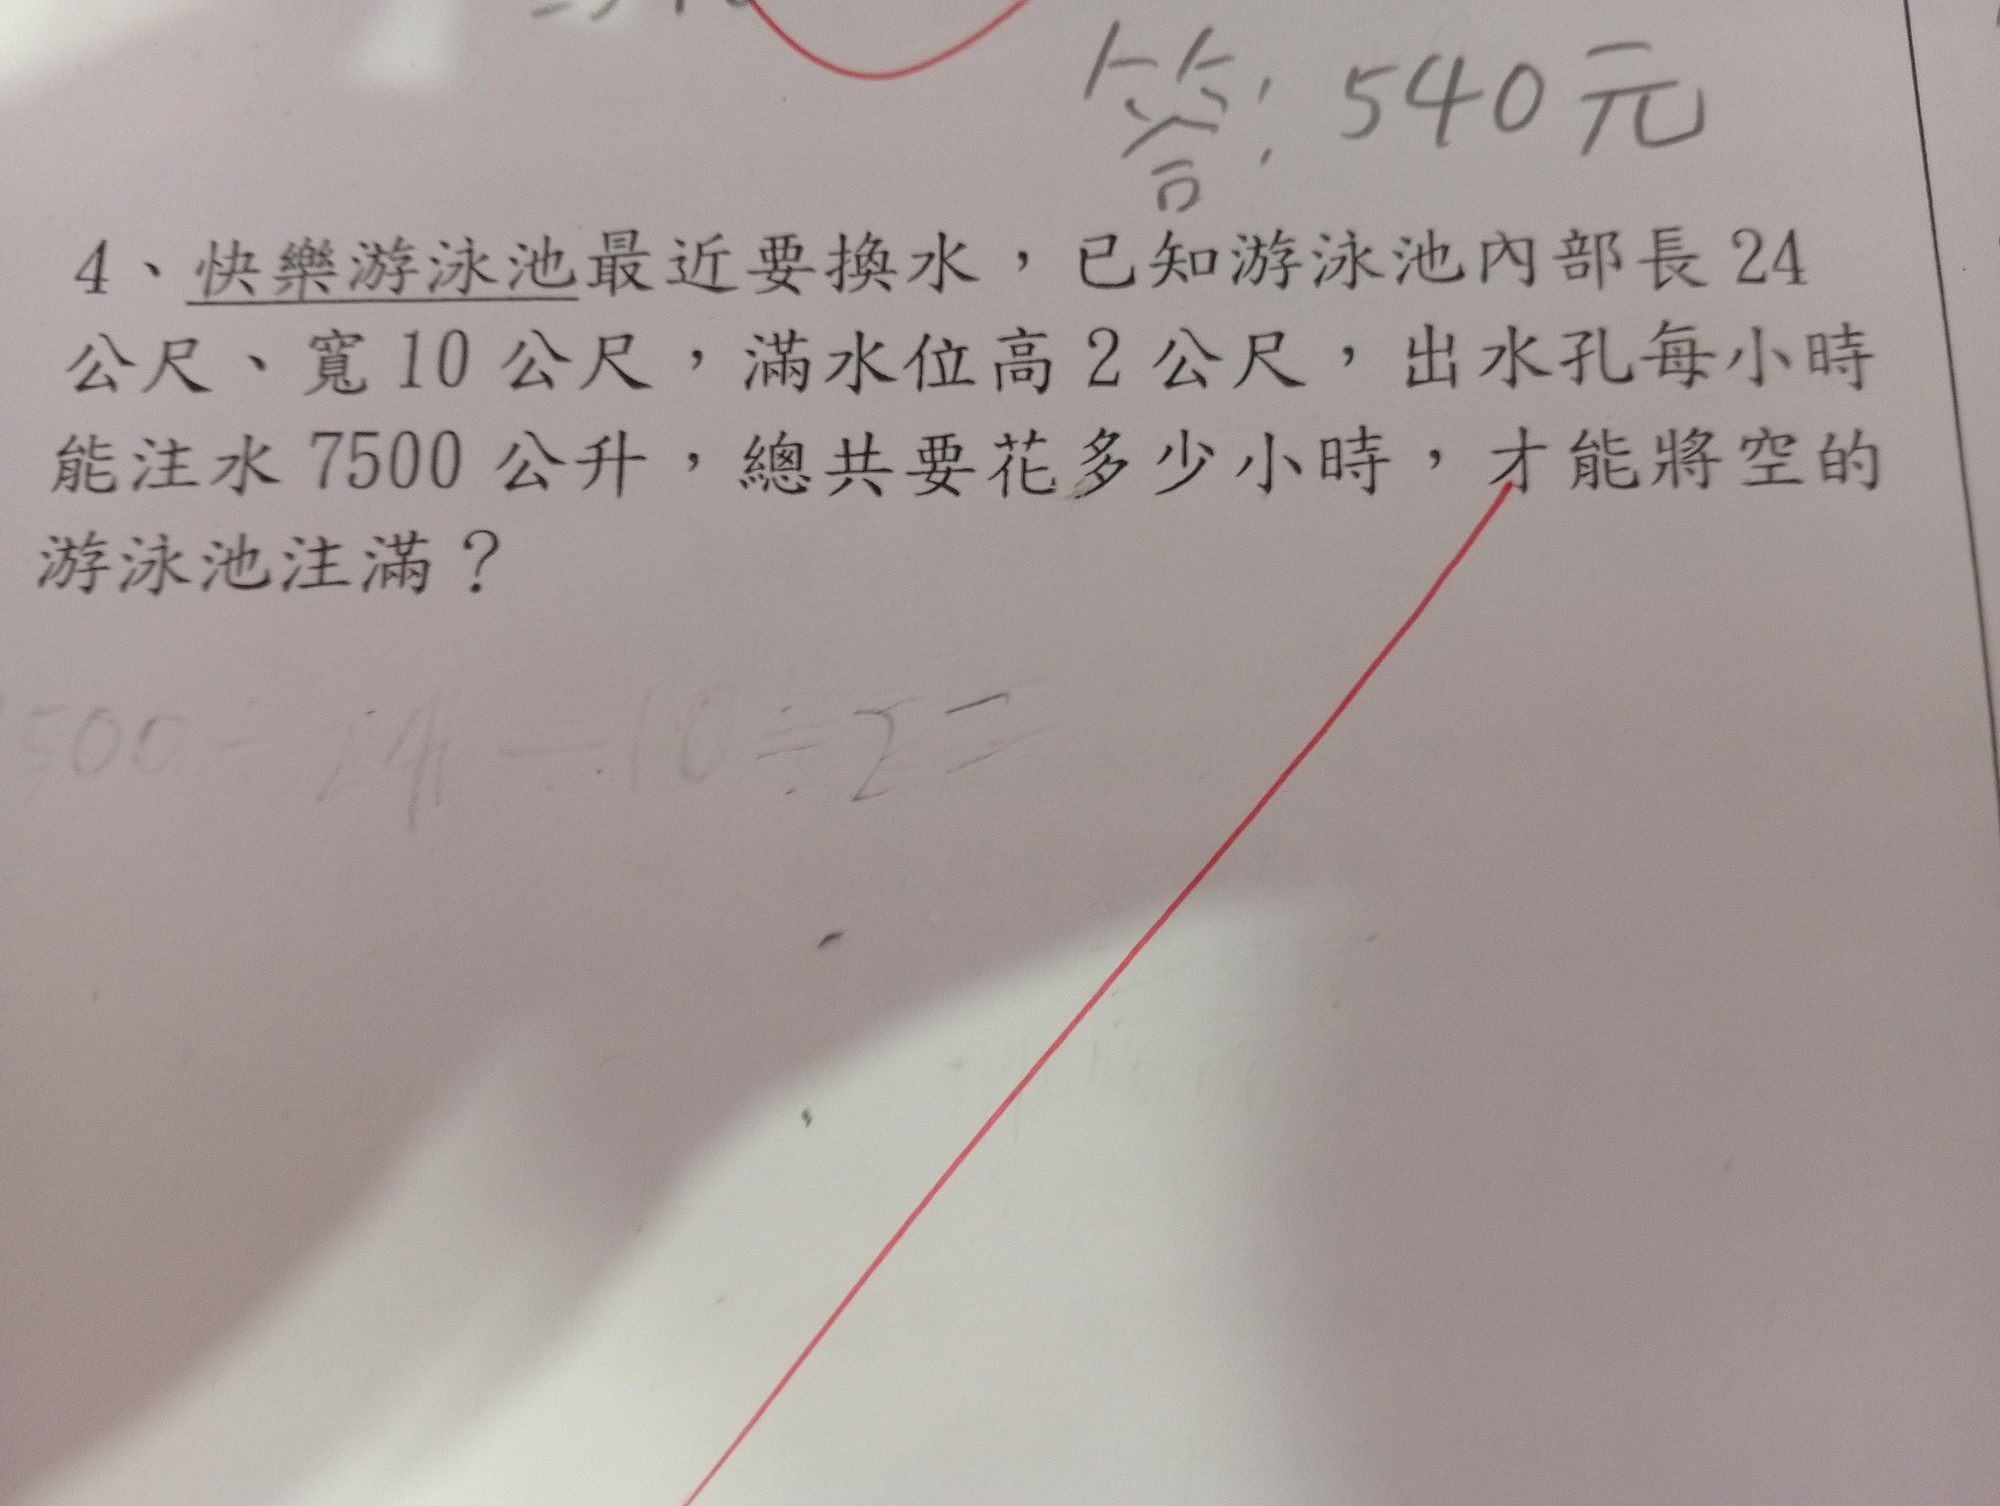 答：540元
4、快樂游泳池最近要換水，已知游泳池內部長24
公尺、寬10公尺，滿水位高2公尺，出水孔每小時
能注水7500公升，總共要花多少小時，才能將空的
游泳池注滿？
500÷24÷10÷2=